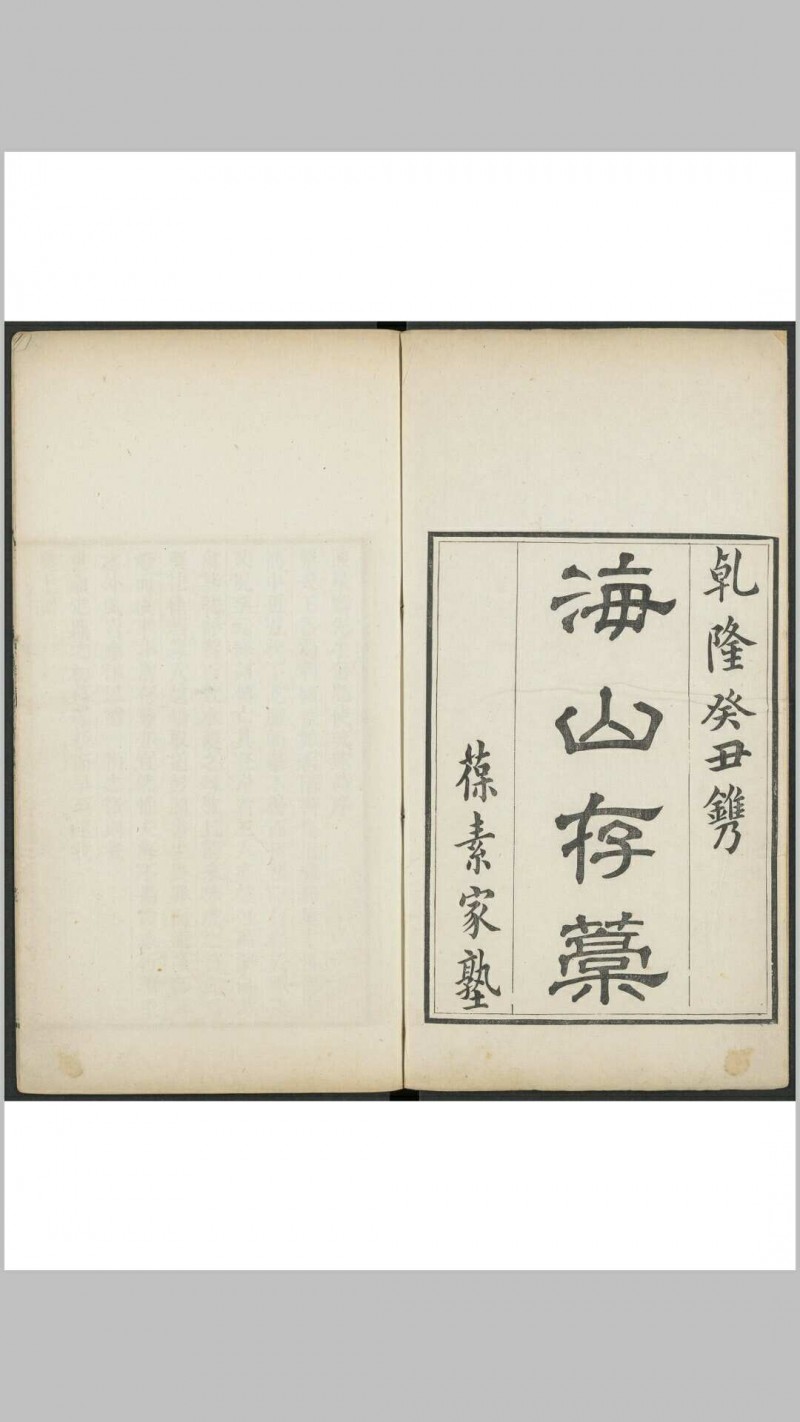 乾隆癸丑鐫
海山存藁
葆素家塾